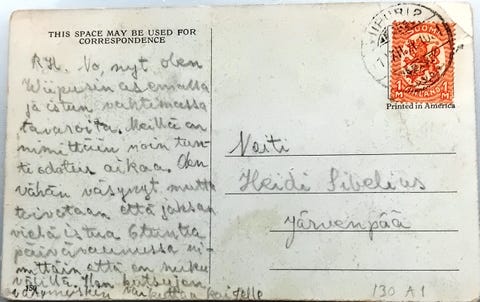 THIS SPACE MAY BE USED FOR
CORRESPONDENCE
R.H. No, nyt olen
Wiipurin asemalla
ja istun vahtimassa
tavaroita. Meillä on
nimittäin noin tun-
ti odotus aikaa. Olen
vähän väsynyt mutta
toivotaan että jaksan
vielä istua 6 tuntia
päivävaunussa ni-
mittäin että on
välillä.
kaikille
VIIPURI 2
SUOMI
1 M 1 M
FINLAND
Printed in America
Neiti
Heidi Sibelius
Järvenpää
130 A1